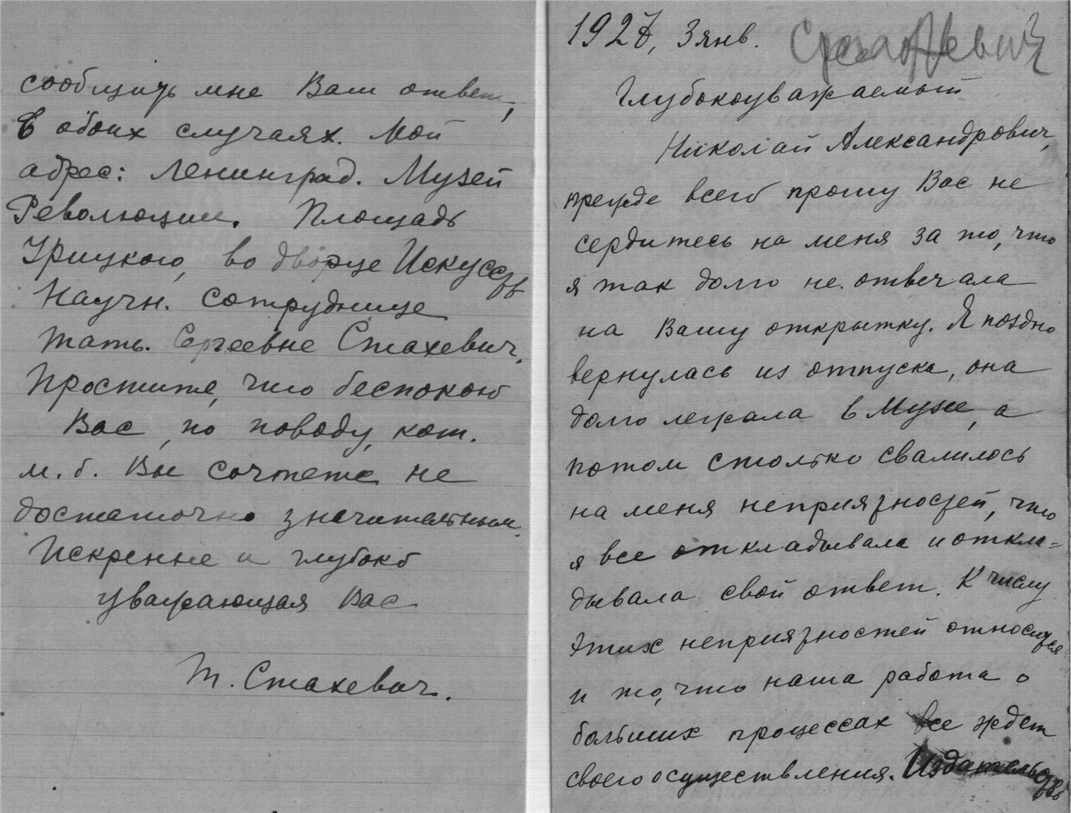 сообщить мне Ваш ответ,
в обоих случаях. Мой
адрес: Ленинград. Музей
Революции. Площадь
Урицкого, во дворце Искусств
Научн. сотруднице
Тать. Сергеевне Стахевич.
Простите, что беспокою
Вас по поводу, кот.
м.б. Вы сочтете не
достаточно значительным.
Искренне и глубоко
уважающая Вас
Т. Стахевич.
1928, 3 янв.
Глубокоуважаемый
Николай Александрович,
прежде всего прошу Вас не
сердитесь на меня за то, что
я так долго не отвечала
на Вашу открытку. Я поздно
вернулась из отпуска, она
долго лежала в Музее, а
потом столько свалилось
на меня неприятностей, что
я все откладывала и откла=
дывала свой ответ. К числу
этих неприятностей относится
и то, что наша работа о
больших процессах все ждет
своего осуществления. Издательство